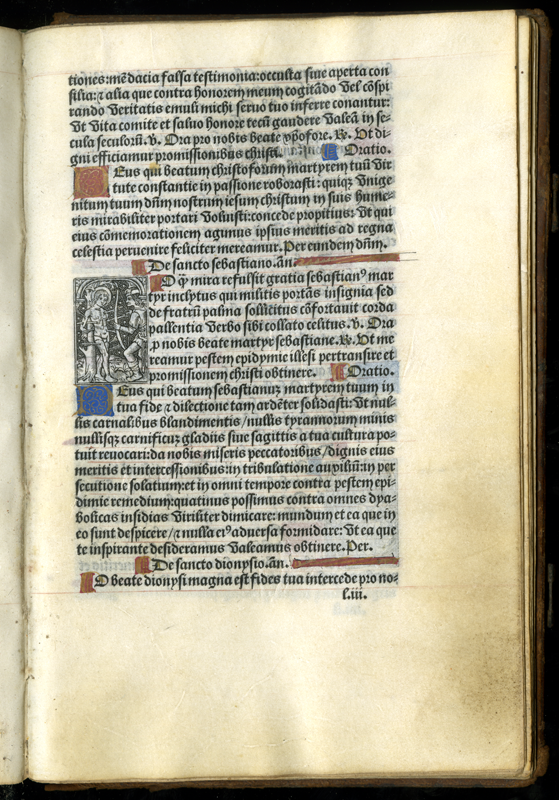 tiones: mẽdacia falsa testimonia: occulta siue aperta con
silia: ⁊ alia que contra honorem meum cogitãdo vel cõspi
rando veritatis emuli michi seruo tuo inferre conantur:
vt vita comite et saluo honore tecũ gaudere valeã in se-
cula seculorũ. ℣. Ora pro nobis beate xp̃ofore. ℟. Ut di-
gni efficiamur promissionibus christi. Oratio.
Deus qui beatum christoforum martyrem tuũ vir
tute constantie in passione roborasti: quiqȝ vnige
nitum tuum dñm nostrum iesum christum in suis hume-
ris mirabiliter portari voluisti: concede propitius: vt qui
eius cõmemorationem agimus ipsius meritis ad regna
celestia peruenire feliciter mereamur. Per eundem dñm.
De sancto sebastiano. añ.
O q̃ mira refulsit gratia sebastianꝰ mar
tyr inclytus qui militis portãs insignia sed
de fratrũ palma sollicitus cõfortauit corda
pallentia verbo sibi collato celitus. ℣. Ora
p nobis beate martyr sebastiane. ℟. Ut me
reamur pestem epidymie illesi pertransire et
promissionem christi obtinere. Oratio.
Deus qui beatum sebastianuȝ martyrem tuum in
tua fide ⁊ dilectione tam ardẽter solidasti: vt nul-
lis carnalibus blandimentis/ nullis tyrannorum minis
nullisqȝ carnificuȝ gladiis siue sagittis a tua cultura po-
tuit reuocari: da nobis miseris peccatoribus/ dignis eius
meritis et intercessionibus: in tribulatione auxiliũ: in per
secutione solatium: et in omni tempore contra pestem epi-
dimie remedium: quatinus possimus contra omnes dya-
bolicas insidias viriliter dimicare: mundum et ea que in
eo sunt despicere/ ⁊ nulla eiꝰ aduersa formidare: vt ea que
te inspirante desideramus valeamus obtinere. Per.
De sancto dionysio. añ.
O beate dionysi magna est fides tua intercede pro no-
l.iii.